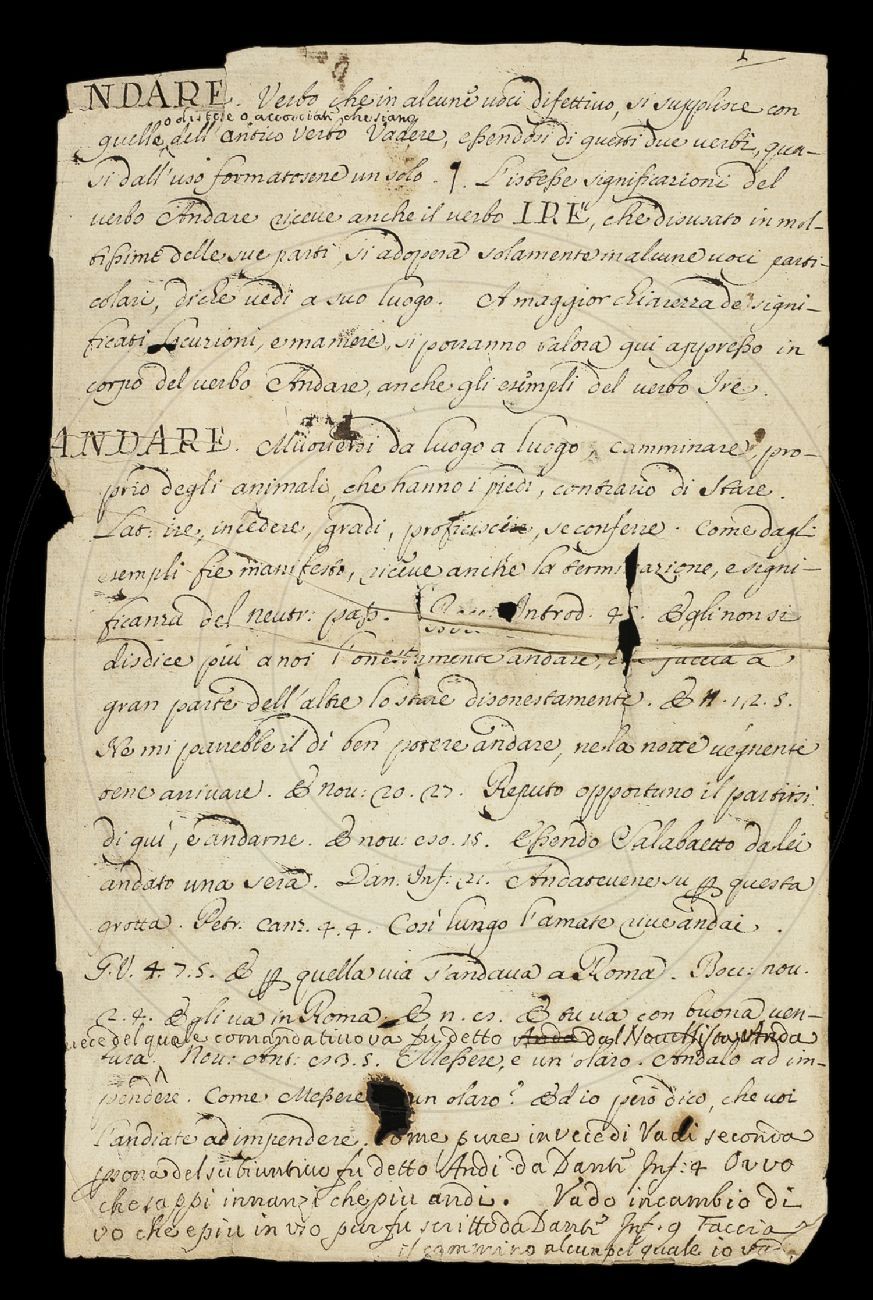 1
ANDARE. Verbo che in alcune voci difettivo, si supplisce con
o distese o accorciati che siano
quelle dell'antico verbo Vadere, eßendosi di questi due verbi, qua-
si dall'uso formatosene un solo. ¶. L'isteße significazioni del
verbo Andare riceve anche il verbo IRE, che disusato in mol-
tißime delle sue parti, si adopera solamente in alcune voci parti-
colari, di che vedi a suo luogo. A maggior chiarezza de' signi-
ficati, locuzioni, e maniere, si porranno talora qui appreßo in
corpo del verbo Andare, anche gli esempli del verbo Ire.
ANDARE. Muoversi da luogo a luogo, camminare, pro-
prio degli animali, che hanno i piedi, contrario di Stare.
Lat: ire, incedere, gradi, proficisci, se conferre. Come dagl:
esempli fie manifesto, riceve anche la terminazione, e signi-
ficanza del neutr: paß. Introd: 45. Egli non si
disdice più a noi l'onestamente andare, che faccia a
gran parte dell'altre lo stare disonestamente. E n. 12. 5.
Ne mi parrebbe il dì ben potere andare, ne la notte vegnente
bene arrivare. E nov: 20. 27. Reputo opportuno il partirsi
di qui, e andarne. E nov: 80. 15. Eßendo Salabaetto da lei
andato una sera. Dan. Inf: 21. Andatevene su ꝑ questa
grotta. Petr. canz. 4. 4. Così lungo l'amate rive andai.
G. V. 4. 7. 5. E ꝑ quella via s'andava a Roma. Bocc: nov.
2. 4. Egli va in Roma. E n. 21. E tu va con buona ven-
vece del quale comandativo va fu detto Anda dal Novellista Anda
tura. Nov: Ant: 83. 5. Meßere, e un olaro. Andalo ad im-
pendere. Come Meßere un olaro? Ed io però dico, che voi
l'andiate ad impendere. Come pure in vece di Vadi seconda
ꝑsona del subiuntivo fu detto Andi da Dante Inf: 4 Or vo
che sappi innanzi che più andi. Vado in cambio di
vo che e più in uso pur fu scritto da Dante Inf. 9 Faccia
il cammino alcun pel quale io vado.